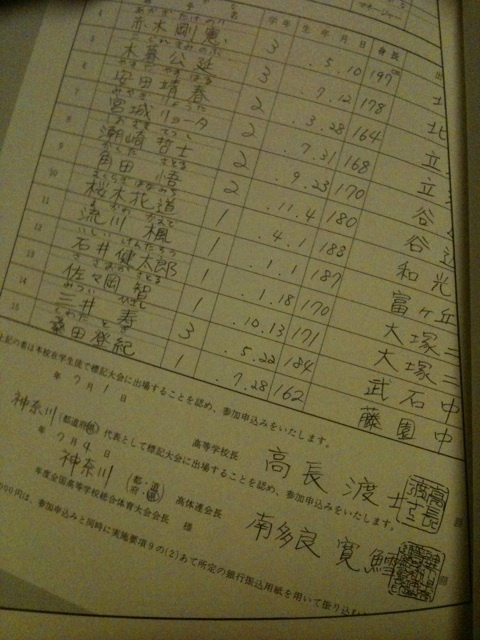 マネージャー
学年 生年月日 身長
4 赤木剛憲 3 .5.10 197
5 木暮公延 3 .7.12 178
6 安田靖春 2 .3.28 164
7 宮城リョータ 2 .7.31 168
8 潮崎哲士 2 .9.23 170
9 角田悟 2 .11.4 180
10 桜木花道 1 .4.1 188 和光
11 流川楓 1 .1.1 187 富ヶ丘
12 石井健太郎 1 .1.18 170 大塚二
13 佐々岡智 1 .10.13 171 大塚二
14 三井寿 3 .5.22 184 武石中
15 桑田登紀 1 .7.28 162 藤園中
上記の者は本校在学生徒で標記大会に出場することを認め、参加申込みをいたします。
年 7月 1日
高等学校長 高長 渡
神奈川 代表として標記大会に出場することを認め、参加申込みをいたします。
年 7月 9日
神奈川 (都・道府・県) 高体連会長 南多良 寛鱈
年度全国高等学校総合体育大会会長 様
000円は、参加申込みと同時に実施要項9の(2)あて所定の銀行振込用紙を用いて振り込